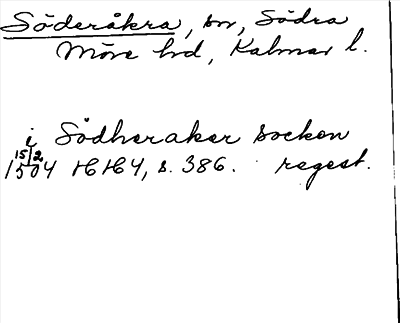 Söderåkra, sn, Södra
Möre hd, Kalmar l.
i Södheraker socken
15/2
1504 HH4, s. 386. regest.